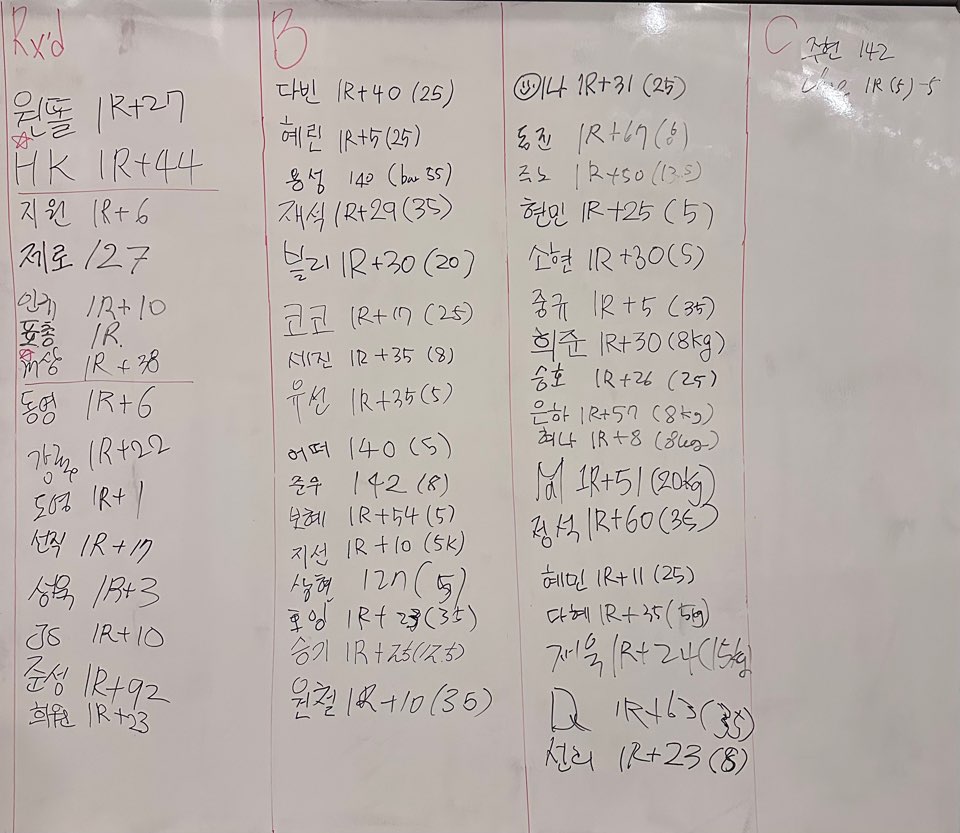 Rx'd
원똘 1R+27
HK 1R+44
지원 1R+6
제로 127
인규 1R+10
표총 1R.
상 1R+38
동영 1R+6
1R+22
도영 1R+1
선직 1R+17
성욱 1R+3
JS 1R+10
준성 1R+92
희원 1R+23
B
다빈 1R+40 (25)
혜린 1R+5 (25)
용성 140 (bar 55)
재석 1R+29 (35)
블리 1R+30 (20)
코코 1R+17 (25)
세진 1R+35 (8)
유선 1R+35 (5)
어떠 140 (5)
준우 142 (8)
보혜 1R+54 (5)
지선 1R+10 (5k)
상현 127 (5)
호잉 1R+23 (35)
승기 1R+25 (12.5)
원철 1R+10 (35)
나 1R+31 (25)
동진 1R+67 (6)
주노 1R+50 (13.5)
현민 1R+25 (5)
소현 1R+30 (5)
중규 1R+5 (35)
희준 1R+30 (8kg)
승호 1R+26 (25)
은하 1R+57 (8kg)
희나 1R+8 (8kg)
1R+51 (20kg)
정석 1R+60 (35)
혜민 1R+11 (25)
다혜 1R+35 (5kg)
재욱 1R+24 (15kg)
D 1R+63 (35)
선리 1R+23 (8)
C
주현 142
1R(5)-5